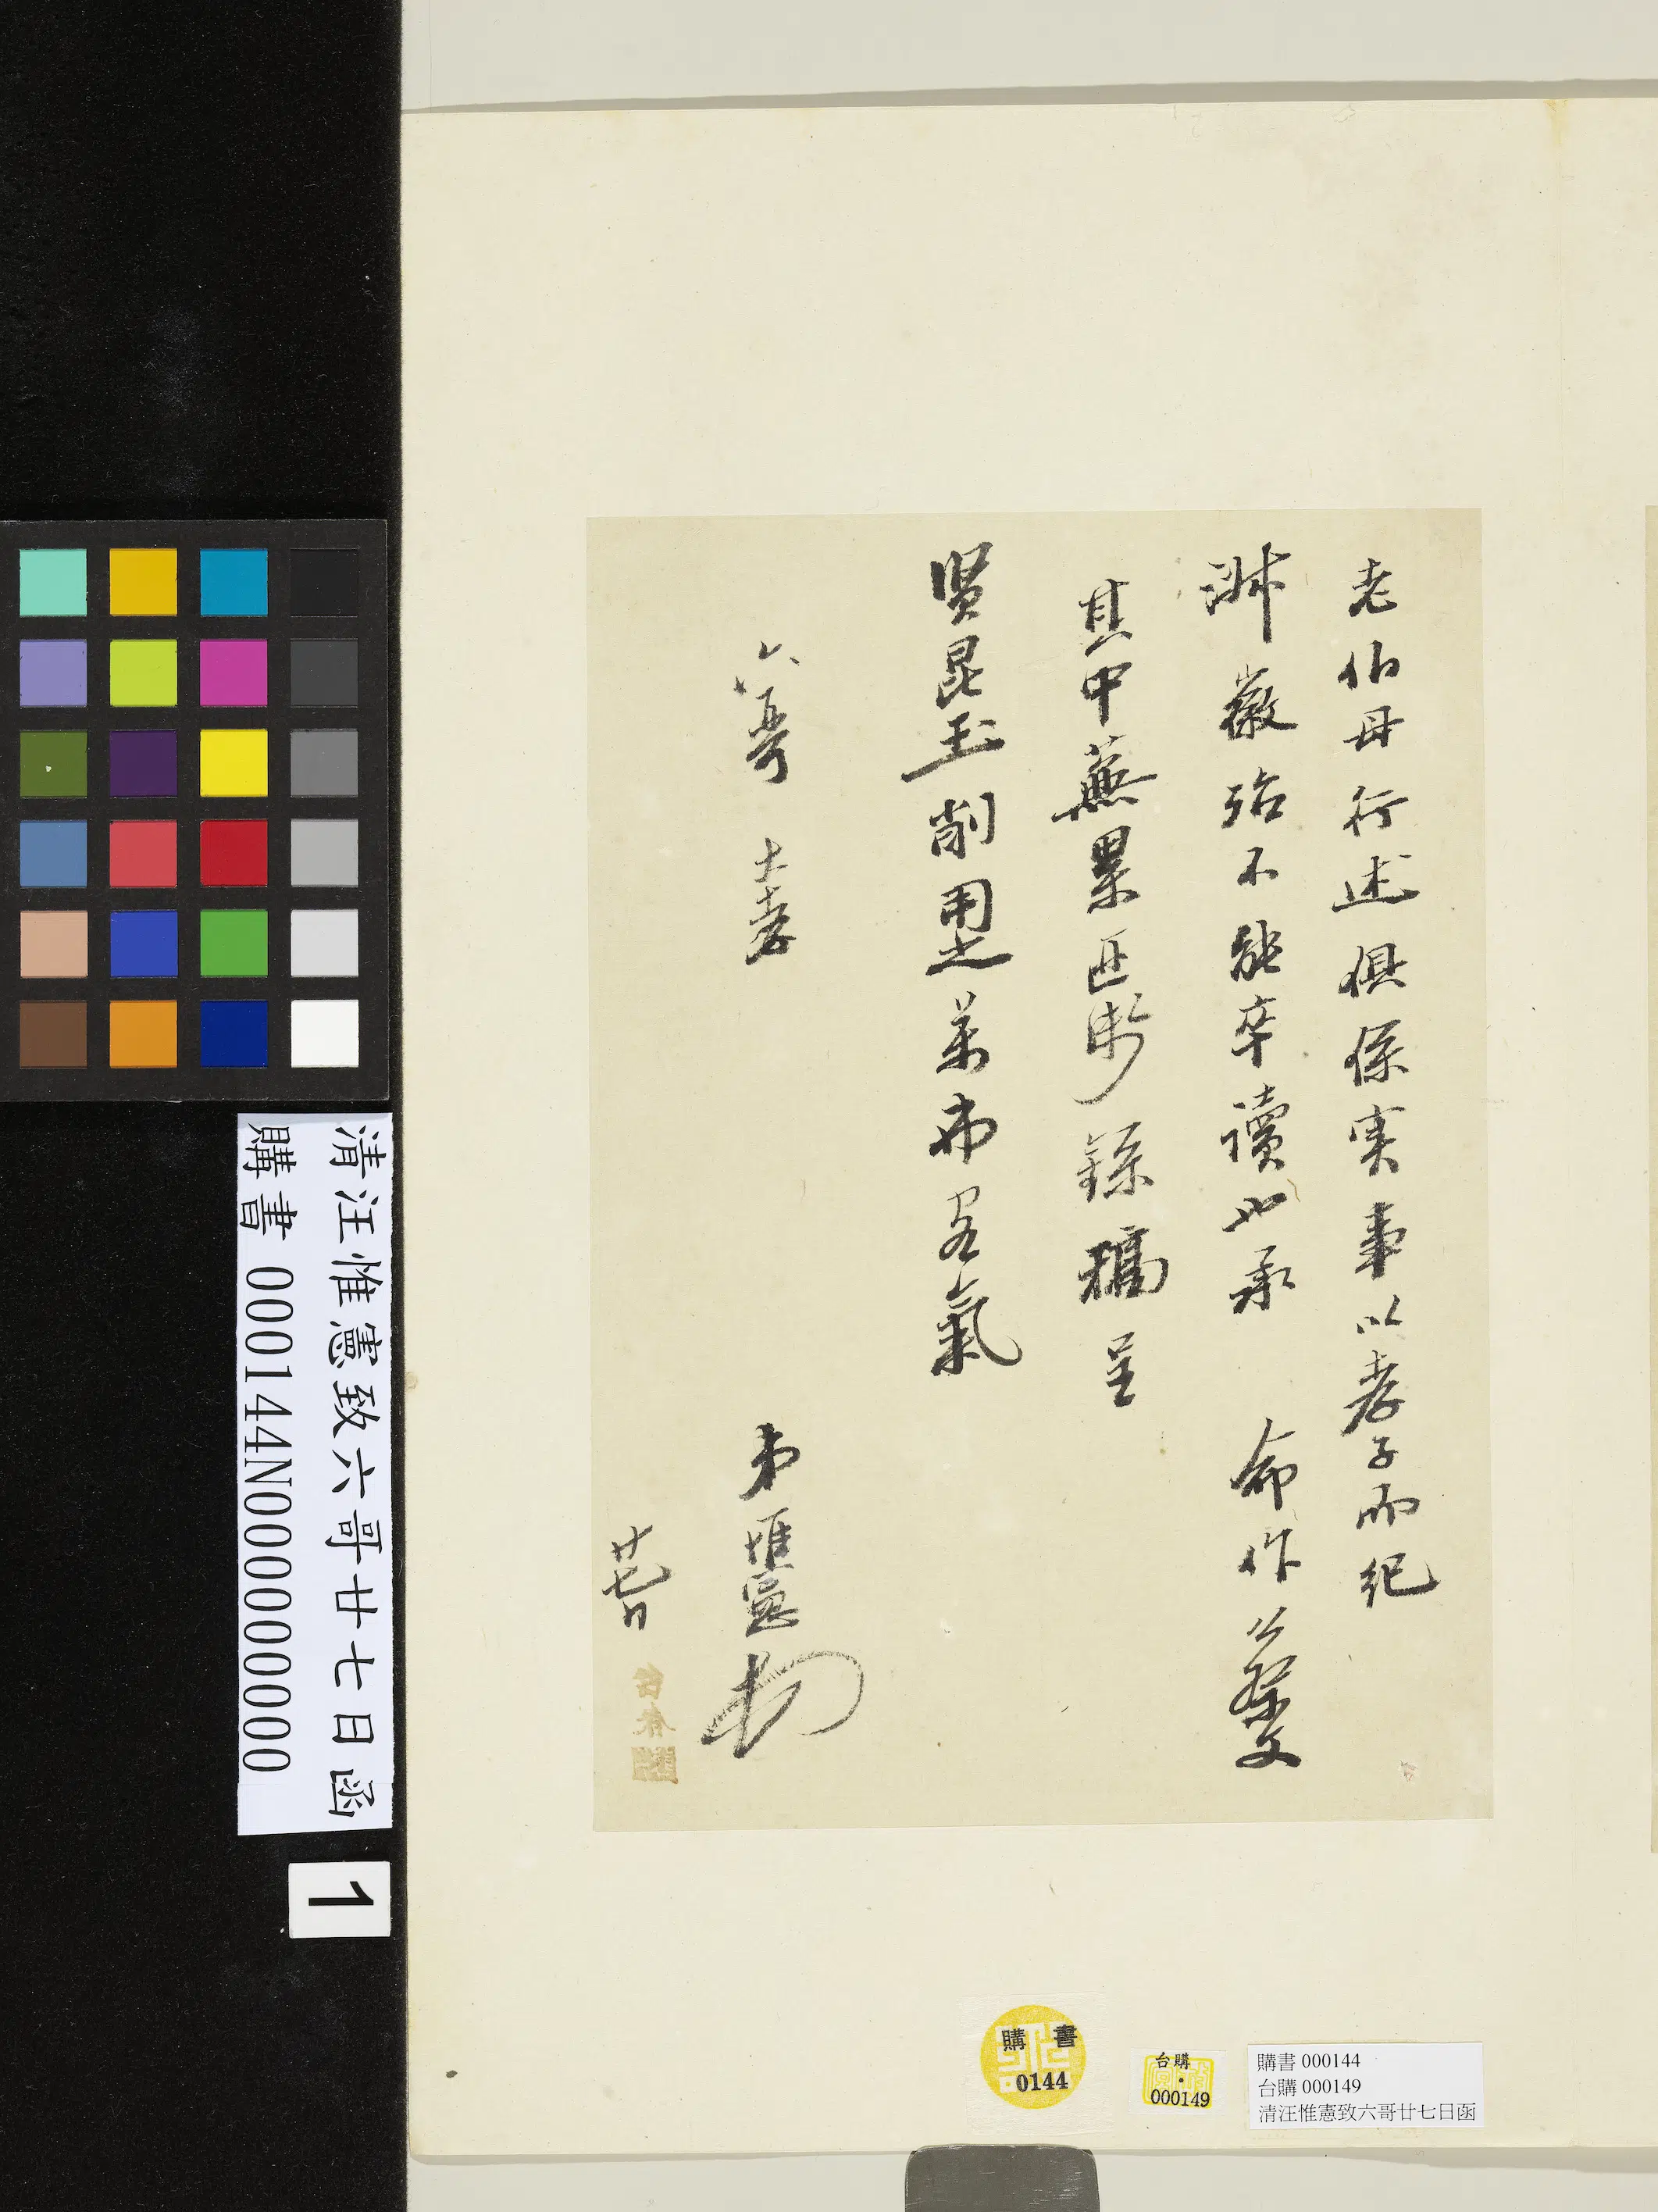 老伯母行述俱係实事以孝子而紀
淑徽殆不能卒讀也承 命作公祭文
其中蕪累 録稿呈
賢昆玉削用之萬弗客氣
六哥 大孝 弟惟憲
廿七日
清汪惟憲致六哥廿七日函
購書 000144N000000000
1
購書
0144
台購
000149
購書 000144
台購 000149
清汪惟憲致六哥廿七日函